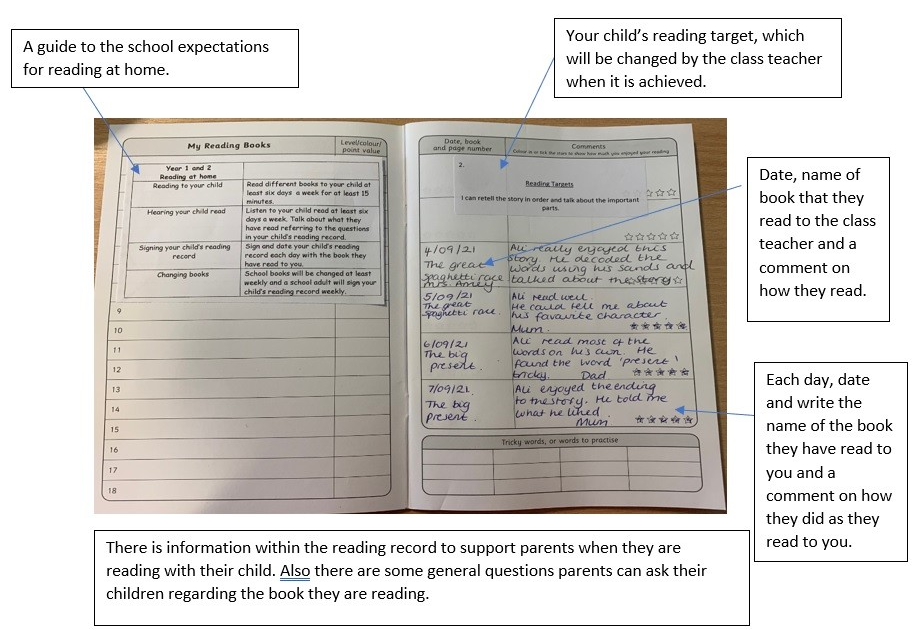 A guide to the school expectations
for reading at home.
Your child's reading target, which
will be changed by the class teacher
when it is achieved.
My Reading Books
Level/colour/
point value
Year 1 and 2
Reading at home
Reading to your child
Read different books to your child at
least six days a week for at least 15
minutes.
Hearing your child read
Listen to your child read at least six
days a week. Talk about what they
have read referring to the questions
in your child's reading record.
Signing your child's reading
record
Sign and date your child's reading
record each day with the book they
have read to you.
Changing books
School books will be changed at least
weekly and a school adult will sign your
child's reading record weekly.
9
10
11
12
13
14
15
16
17
18
Date, book
and page number
Comments
Colour in or tick the stars to show how much you enjoyed your reading
2.
Reading Targets
I can retell the story in order and talk about the important
parts.
4/09/21
The great
Spaghetti race
Mrs. Amey
Ali really enjoyed this
story. He decoded the
words using his sounds and
talked about the story
5/09/21
The great
Spaghetti race.
Ali read well.
He could tell me about
his favourite character.
Mum.
6/09/21
The big
present.
Ali read most of the
words on his own. He
found the word 'present'
tricky. Dad
7/09/21
The big
present.
Ali enjoyed the ending
to the story. He told me
what he liked.
Mum
Tricky words, or words to practise
Date, name of
book that they
read to the class
teacher and a
comment on
how they read.
Each day, date
and write the
name of the book
they have read to
you and a
comment on how
they did as they
read to you.
There is information within the reading record to support parents when they are
reading with their child. Also there are some general questions parents can ask their
children regarding the book they are reading.